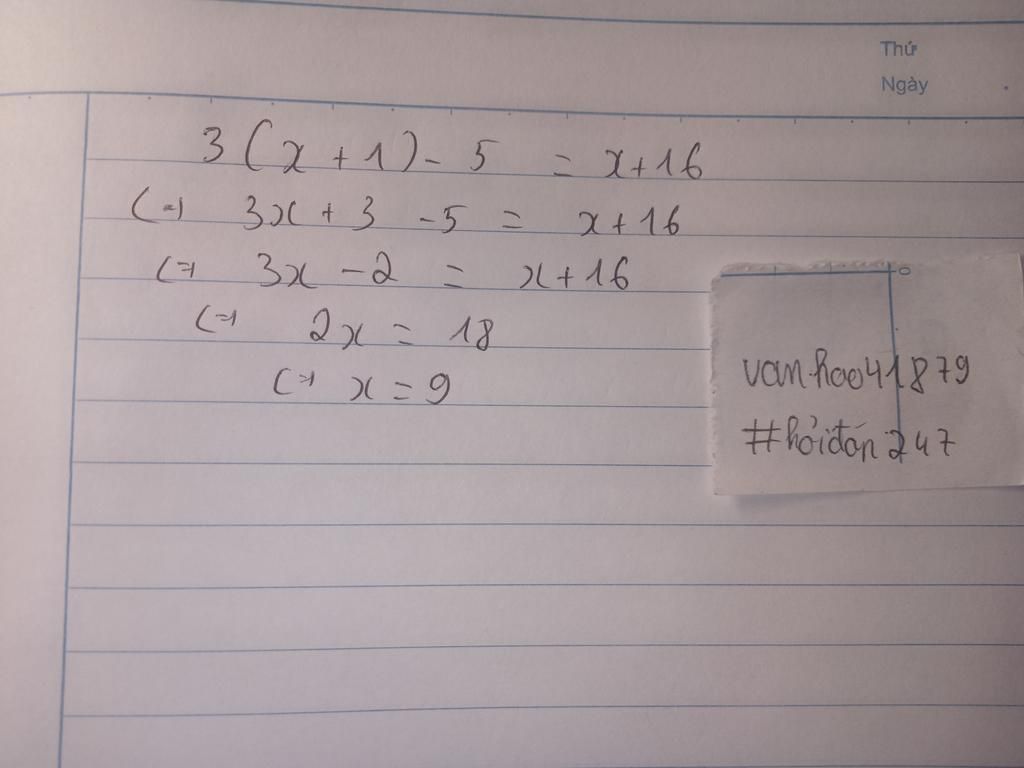 Thứ
Ngày
3(x+1)-5 = x+16
(=) 3x+3-5 = x+16
(=) 3x-2 = x+16
(=) 2x = 18
(=) x = 9
vanhao41879
#hỏiđáp247